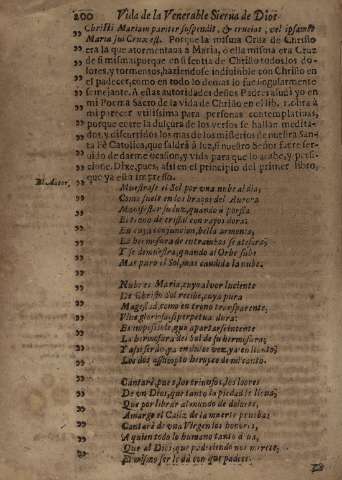 200 Vida de la Venerable Sierva de Dios
Christi Mariam pariter suspendit, & cruciat, vel ipsamet
Maria sui Crux est. Porque la misma Cruz de Christo
era la que atormentava à Maria, ò ella misma era Cruz
de si misma: porque en si sentia de Christo todos los do-
lores, y tormentos, haziendose indivisible con Christo en
el padecer, como en todo lo demàs le fue singularmente
semejante. A estas autoridades de los Padres aludì yo en
mi Poema Sacro de la vida de Christo en el lib. 1. obra à
mi parecer vtilissima para personas contemplativas,
porque entre la dulçura de los versos se hallan medita-
dos, y discurridos los mas de los misterios de nuestra San-
ta Fè Catolica, que saldrà à luz, si nuestro Señor fuere ser-
vido de darme ocasion, y vida para que lo acabe, y perfi-
cione. Dixe, pues, assi en el principio del primer libro,
que ya està impresso.
El Autor.
Muestrase el Sol por vna nube al dia;
Como suele en los braços del Aurora
Manifestar su luz, quando à porfia
El trono de cristal con rayos dora:
En cuya conjuncion, bella armonia,
La hermosura de entrambos se atesora;
Y se demuestra, quando al Orbe sube
Mas puro el Sol, mas candida la nube.
Nube es Maria, cuyo albor luciente
De Christo Sol recibe, cuya pura
Magestad, como en trono transparente,
Vive gloriosa, si perpetua dura:
Es impossible, que apartar se intente
La hermosura del Sol de su hermosura;
Y assi serán, ya en dulce voz, ya en llanto,
Los dos assumpto heroyco de mi canto.
Cantarè, pues, los triunfos, los loores
De vn Dios, que tanto la piedad le lleva,
Que por librar al mundo de dolores,
Amargo el Caliz de la muerte prueba:
Cantarè de vna Virgen los honores,
A quien todo lo humano tanto deva,
Que al Dios, que padeciendo nos merece,
El mismo ser le dà con que padece.